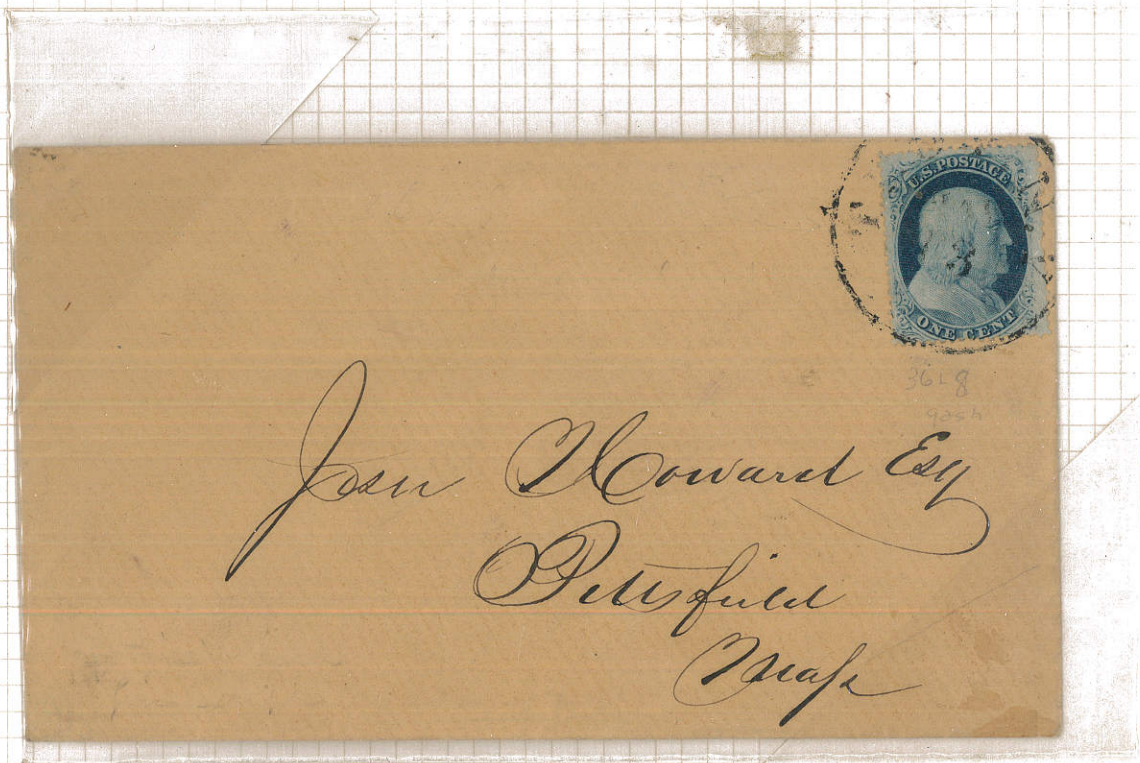 U.S. POSTAGE
3
ONE CENT
36L8
Howard Esq
Pittsfield
Mass